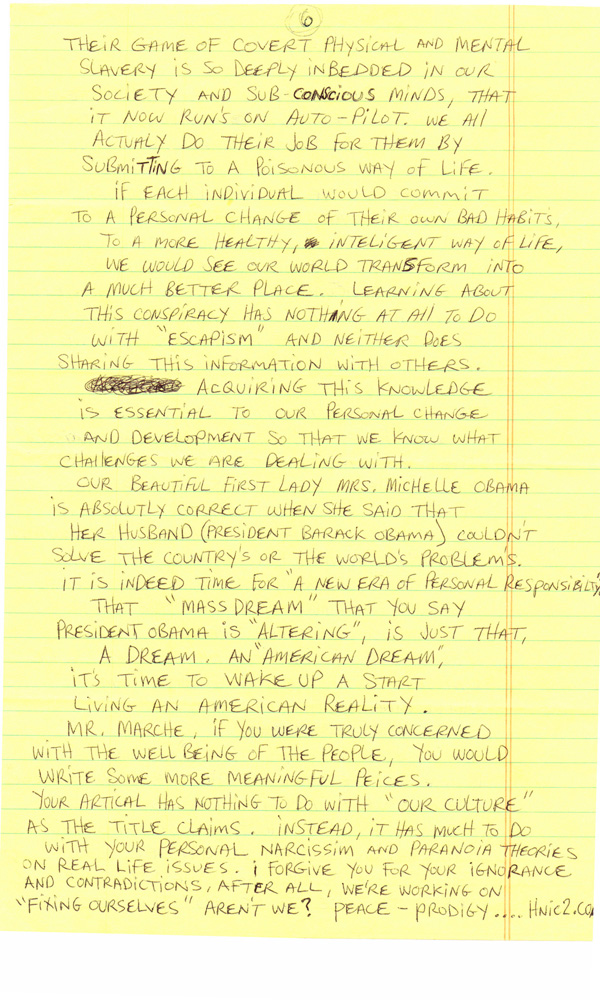 6
THEIR GAME OF COVERT PHYSICAL AND MENTAL
SLAVERY IS SO DEEPLY INBEDDED IN OUR
SOCIETY AND SUB-CONSCIOUS MINDS, THAT
IT NOW RUN'S ON AUTO-PILOT. WE All
ACTUALY DO THEIR JOB FOR THEM BY
SUBMITTING TO A POISONOUS WAY OF LIFE.
IF EACH INDIVIDUAL WOULD COMMIT
TO A PERSONAL CHANGE OF THEIR OWN BAD HABITS,
TO A MORE HEALTHY, INTELIGENT WAY OF LIFE,
WE WOULD SEE OUR WORLD TRANSFORM INTO
A MUCH BETTER PLACE. LEARNING ABOUT
THIS CONSPIRACY HAS NOTHING AT All TO DO
WITH "ESCAPISM" AND NEITHER DOES
SHARING THIS INFORMATION WITH OTHERS.
ACQUIRING THIS KNOWLEDGE
IS ESSENTIAL TO OUR PERSONAL CHANGE
AND DEVELOPMENT SO THAT WE KNOW WHAT
CHAllENGES WE ARE DEALING WITH.
OUR BEAUTIFUL FIRST LADY MRS. MICHELLE OBAMA
IS ABSOLUTLY CORRECT WHEN SHE SAID THAT
HER HUSBAND (PRESIDENT BARACK OBAMA) COULDN'T
SOLVE THE COUNTRY'S OR THE WORLD'S PROBLEM'S.
IT IS INDEED TIME FOR "A NEW ERA OF PERSONAL RESPONSIBILTY"
THAT "MASS DREAM" THAT YOU SAY
PRESIDENT OBAMA IS "ALTERING", IS JUST THAT,
A DREAM. AN "AMERICAN DREAM",
IT'S TIME TO WAKE UP A START
LIVING AN AMERICAN REALITY.
MR. MARCHE, IF YOU WERE TRULY CONCERNED
WITH THE WELL BEING OF THE PEOPLE, YOU WOULD
WRITE SOME MORE MEANINGFUL PEICES.
YOUR ARTICAL HAS NOTHING TO DO WITH "OUR CULTURE"
AS THE TITLE CLAIMS. INSTEAD, IT HAS MUCH TO DO
WITH YOUR PERSONAL NARCISSIM AND PARANOIA THEORIES
ON REAL LIFE ISSUES. I FORGIVE YOU FOR YOUR IGNORANCE
AND CONTRADICTIONS, AFTER ALL, WE'RE WORKING ON
"FIXING OURSELVES" AREN'T WE? PEACE - PRODIGY .... HNIC2.CO